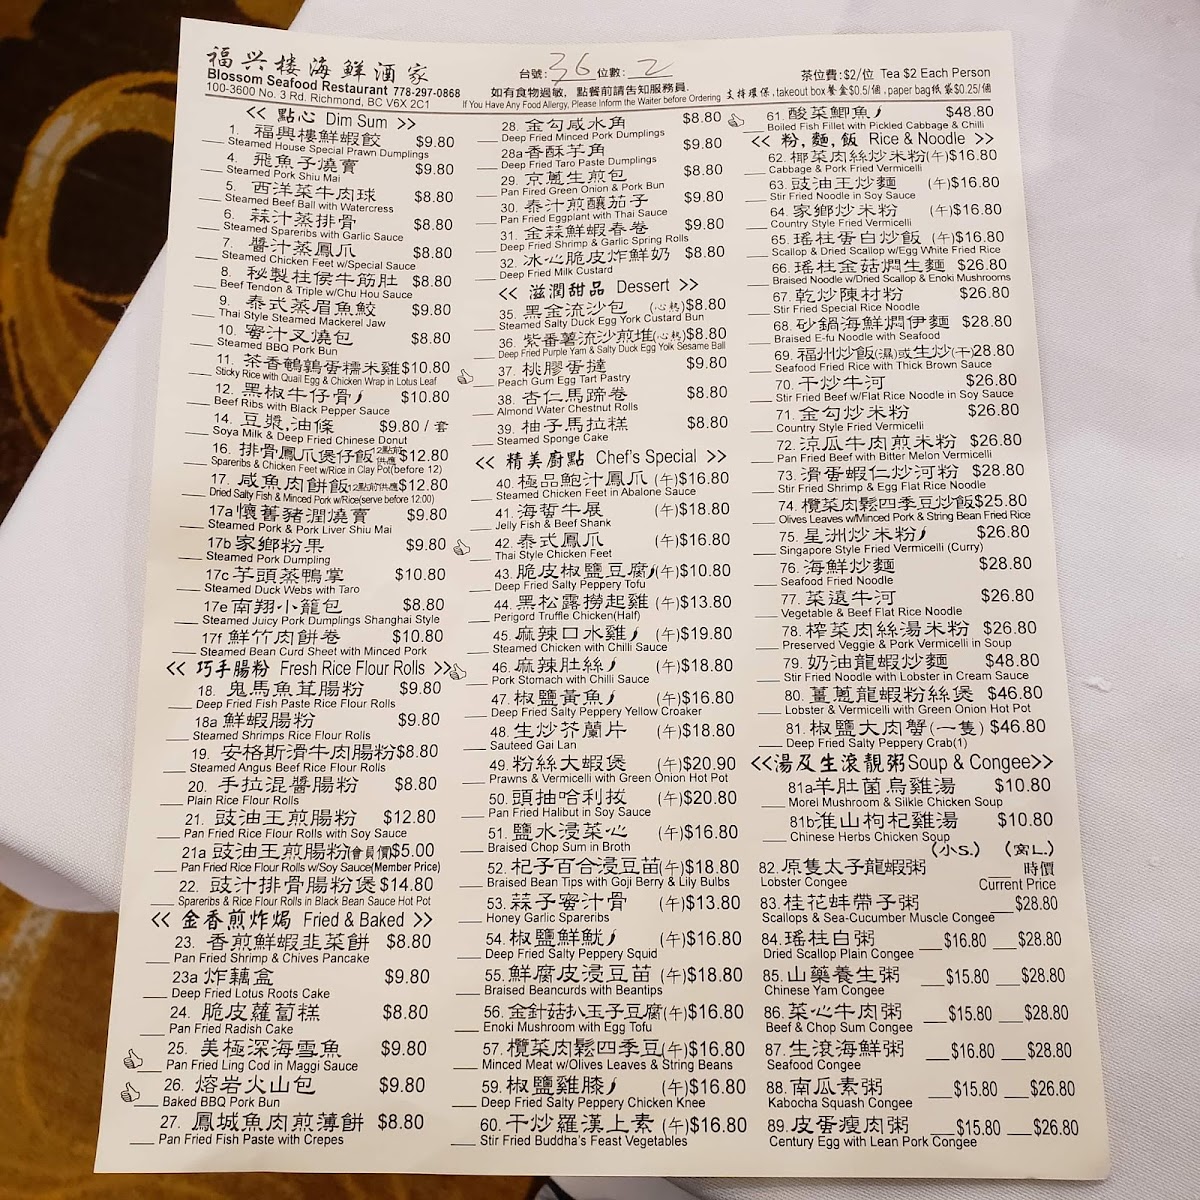 福兴楼海鮮酒家
Blossom Seafood Restaurant 778-297-0868
100-3600 No. 3 Rd. Richmond, BC V6X 2C1
台號: 36 位數: 2
如有食物過敏, 點餐前請告知服務員.
If You Have Any Food Allergy, Please Inform the Waiter before Ordering
茶位費:$2/位 Tea $2 Each Person
支持環保, takeout box餐盒$0.5/個, paper bag紙袋$0.25/個
<< 點心 Dim Sum >>
1. 福興樓鮮蝦餃 $9.80
Steamed House Special Prawn Dumplings
4. 飛魚子燒賣 $9.80
Steamed Pork Shiu Mai
5. 西洋菜牛肉球 $8.80
Steamed Beef Ball with Watercress
6. 蒜汁蒸排骨 $8.80
Steamed Spareribs with Garlic Sauce
7. 醬汁蒸鳳爪 $8.80
Steamed Chicken Feet w/Special Sauce
8. 秘製柱侯牛筋肚 $8.80
Beef Tendon & Triple w/Chu Hou Sauce
9. 泰式蒸眉魚鮫 $9.80
Thai Style Steamed Mackerel Jaw
10. 蜜汁叉燒包 $8.80
Steamed BBQ Pork Bun
11. 茶香鵪鶉蛋糯米雞 $10.80
Sticky Rice with Quail Egg & Chicken Wrap in Lotus Leaf
12. 黑椒牛仔骨 $10.80
Beef Ribs with Black Pepper Sauce
14. 豆漿,油條 $9.80 / 套
Soya Milk & Deep Fried Chinese Donut
16. 排骨鳳爪煲仔飯12點前供應 $12.80
Spareribs & Chicken Feet w/Rice in Clay Pot(before 12)
17. 咸魚肉餅飯(12點前供應) $12.80
Dried Salty Fish & Minced Pork w/Rice(serve before 12:00)
17a 懷舊豬潤燒賣 $9.80
Steamed Pork & Pork Liver Shiu Mai
17b 家鄉粉果 $9.80
Steamed Pork Dumpling
17c 芋頭蒸鴨掌 $10.80
Steamed Duck Webs with Taro
17e 南翔小籠包 $8.80
Steamed Juicy Pork Dumplings Shanghai Style
17f 鮮竹肉餅卷 $10.80
Steamed Bean Curd Sheet with Minced Pork
<< 巧手腸粉 Fresh Rice Flour Rolls >>
18. 鬼馬魚茸腸粉 $9.80
Deep Fried Fish Paste Rice Flour Rolls
18a 鮮蝦腸粉 $9.80
Steamed Shrimps Rice Flour Rolls
19. 安格斯滑牛肉腸粉 $8.80
Steamed Angus Beef Rice Flour Rolls
20. 手拉混醬腸粉 $8.80
Plain Rice Flour Rolls
21. 豉油王煎腸粉 $12.80
Pan Fried Rice Flour Rolls with Soy Sauce
21a 豉油王煎腸粉(會員價) $5.00
Pan Fried Rice Flour Rolls w/Soy Sauce(Member Price)
22. 豉汁排骨腸粉煲 $14.80
Spareribs & Rice Flour Rolls in Black Bean Sauce Hot Pot
<< 金香煎炸焗 Fried & Baked >>
23. 香煎鮮蝦韭菜餅 $8.80
Pan Fried Shrimp & Chives Pancake
23a 炸藕盒 $9.80
Deep Fried Lotus Roots Cake
24. 脆皮蘿蔔糕 $8.80
Pan Fried Radish Cake
25. 美極深海雪魚 $9.80
Pan Fried Ling Cod in Maggi Sauce
26. 熔岩火山包 $9.80
Baked BBQ Pork Bun
27. 鳳城魚肉煎薄餅 $8.80
Pan Fried Fish Paste with Crepes
28. 金勾咸水角 $8.80
Deep Fried Minced Pork Dumplings
28a 香酥芋角 $9.80
Deep Fried Taro Paste Dumplings
29. 京蔥生煎包 $8.80
Pan Fired Green Onion & Pork Bun
30. 泰汁煎釀茄子 $9.80
Pan Fried Eggplant with Thai Sauce
31. 金蒜鮮蝦春卷 $9.80
Deep Fried Shrimp & Garlic Spring Rolls
32. 冰心脆皮炸鮮奶 $8.80
Deep Fried Milk Custard
<< 滋潤甜品 Dessert >>
35. 黑金流沙包 (心熱) $8.80
Steamed Salty Duck Egg York Custard Bun
36. 紫番薯流沙煎堆(心熱) $8.80
Deep Fried Purple Yam & Salty Duck Egg Yolk Sesame Ball
37. 桃膠蛋撻 $9.80
Peach Gum Egg Tart Pastry
38. 杏仁馬蹄卷 $8.80
Almond Water Chestnut Rolls
39. 柚子馬拉糕 $8.80
Steamed Sponge Cake
<< 精美廚點 Chef's Special >>
40. 極品鮑汁鳳爪 (午)$16.80
Steamed Chicken Feet in Abalone Sauce
41. 海蜇牛展 (午)$18.80
Jelly Fish & Beef Shank
42. 泰式鳳爪 (午)$16.80
Thai Style Chicken Feet
43. 脆皮椒鹽豆腐 (午)$10.80
Deep Fried Salty Peppery Tofu
44. 黑松露撈起雞 (午)$13.80
Perigord Truffle Chicken(Half)
45. 麻辣口水雞 (午)$19.80
Steamed Chicken with Chilli Sauce
46. 麻辣肚絲 (午)$18.80
Pork Stomach with Chilli Sauce
47. 椒鹽黃魚 (午)$16.80
Deep Fried Salty Peppery Yellow Croaker
48. 生炒芥蘭片 (午)$18.80
Sauteed Gai Lan
49. 粉絲大蝦煲 (午)$20.90
Prawns & Vermicelli with Green Onion Hot Pot
50. 頭抽哈利拔 (午)$20.80
Pan Fried Halibut in Soy Sauce
51. 鹽水浸菜心 (午)$16.80
Braised Chop Sum in Broth
52. 杞子百合浸豆苗 (午)$18.80
Braised Bean Tips with Goji Berry & Lily Bulbs
53. 蒜子蜜汁骨 (午)$13.80
Honey Garlic Spareribs
54. 椒鹽鮮魷 (午)$16.80
Deep Fried Salty Peppery Squid
55. 鮮腐皮浸豆苗 (午)$18.80
Braised Beancurds with Beantips
56. 金針菇扒玉子豆腐 (午)$16.80
Enoki Mushroom with Egg Tofu
57. 欖菜肉鬆四季豆 (午)$16.80
Minced Meat w/Olives Leaves & String Beans
59. 椒鹽雞膝 (午)$16.80
Deep Fried Salty Peppery Chicken Knee
60. 干炒羅漢上素 (午)$16.80
Stir Fried Buddha's Feast Vegetables
61. 酸菜鯽魚 $48.80
Boiled Fish Fillet with Pickled Cabbage & Chilli
<< 粉, 麵, 飯 Rice & Noodle >>
62. 椰菜肉絲炒米粉 (午)$16.80
Cabbage & Pork Fried Vermicelli
63. 豉油王炒麵 (午)$16.80
Stir Fried Noodle in Soy Sauce
64. 家鄉炒米粉 (午)$16.80
Country Style Fried Vermicelli
65. 瑤柱蛋白炒飯 (午)$16.80
Scallop & Dried Scallop w/Egg White Fried Rice
66. 瑤柱金菇燜生麵 $26.80
Braised Noodle w/Dried Scallop & Enoki Mushrooms
67. 乾炒陳材粉 $26.80
Stir Fried Special Rice Noodle
68. 砂鍋海鮮燜伊麵 $28.80
Braised E-fu Noodle with Seafood
69. 福州炒飯(濕)或生炒(干) 28.80
Seafood Fried Rice with Thick Brown Sauce
70. 干炒牛河 $26.80
Stir Fried Beef w/Flat Rice Noodle in Soy Sauce
71. 金勾炒米粉 $26.80
Country Style Fried Vermicelli
72. 涼瓜牛肉煎米粉 $26.80
Pan Fried Beef with Bitter Melon Vermicelli
73. 滑蛋蝦仁炒河粉 $28.80
Stir Fried Shrimp & Egg Flat Rice Noodle
74. 欖菜肉鬆四季豆炒飯 $25.80
Olives Leaves w/Minced Pork & String Bean Fried Rice
75. 星洲炒米粉 $26.80
Singapore Style Fried Vermicelli (Curry)
76. 海鮮炒麵 $28.80
Seafood Fried Noodle
77. 菜遠牛河 $26.80
Vegetable & Beef Flat Rice Noodle
78. 榨菜肉絲湯米粉 $26.80
Preserved Veggie & Pork Vermicelli in Soup
79. 奶油龍蝦炒麵 $48.80
Stir Fried Noodle with Lobster in Cream Sauce
80. 薑蔥龍蝦粉絲煲 $46.80
Lobster & Vermicelli with Green Onion Hot Pot
81. 椒鹽大肉蟹(一隻) $46.80
Deep Fried Salty Peppery Crab(1)
<<湯及生滾靚粥 Soup & Congee>>
81a 羊肚菌烏雞湯 $10.80
Morel Mushroom & Silkie Chicken Soup
81b 淮山枸杞雞湯 $10.80
Chinese Herbs Chicken Soup
(小S.) (窩L.)
82. 原隻太子龍蝦粥 時價
Lobster Congee Current Price
83. 桂花蚌帶子粥 $28.80
Scallops & Sea-Cucumber Muscle Congee
84. 瑤柱白粥 $16.80 $28.80
Dried Scallop Plain Congee
85. 山藥養生粥 $15.80 $28.80
Chinese Yam Congee
86. 菜心牛肉粥 $15.80 $28.80
Beef & Chop Sum Congee
87. 生滾海鮮粥 $16.80 $28.80
Seafood Congee
88. 南瓜素粥 $15.80 $26.80
Kabocha Squash Congee
89. 皮蛋瘦肉粥 $15.80 $26.80
Century Egg with Lean Pork Congee